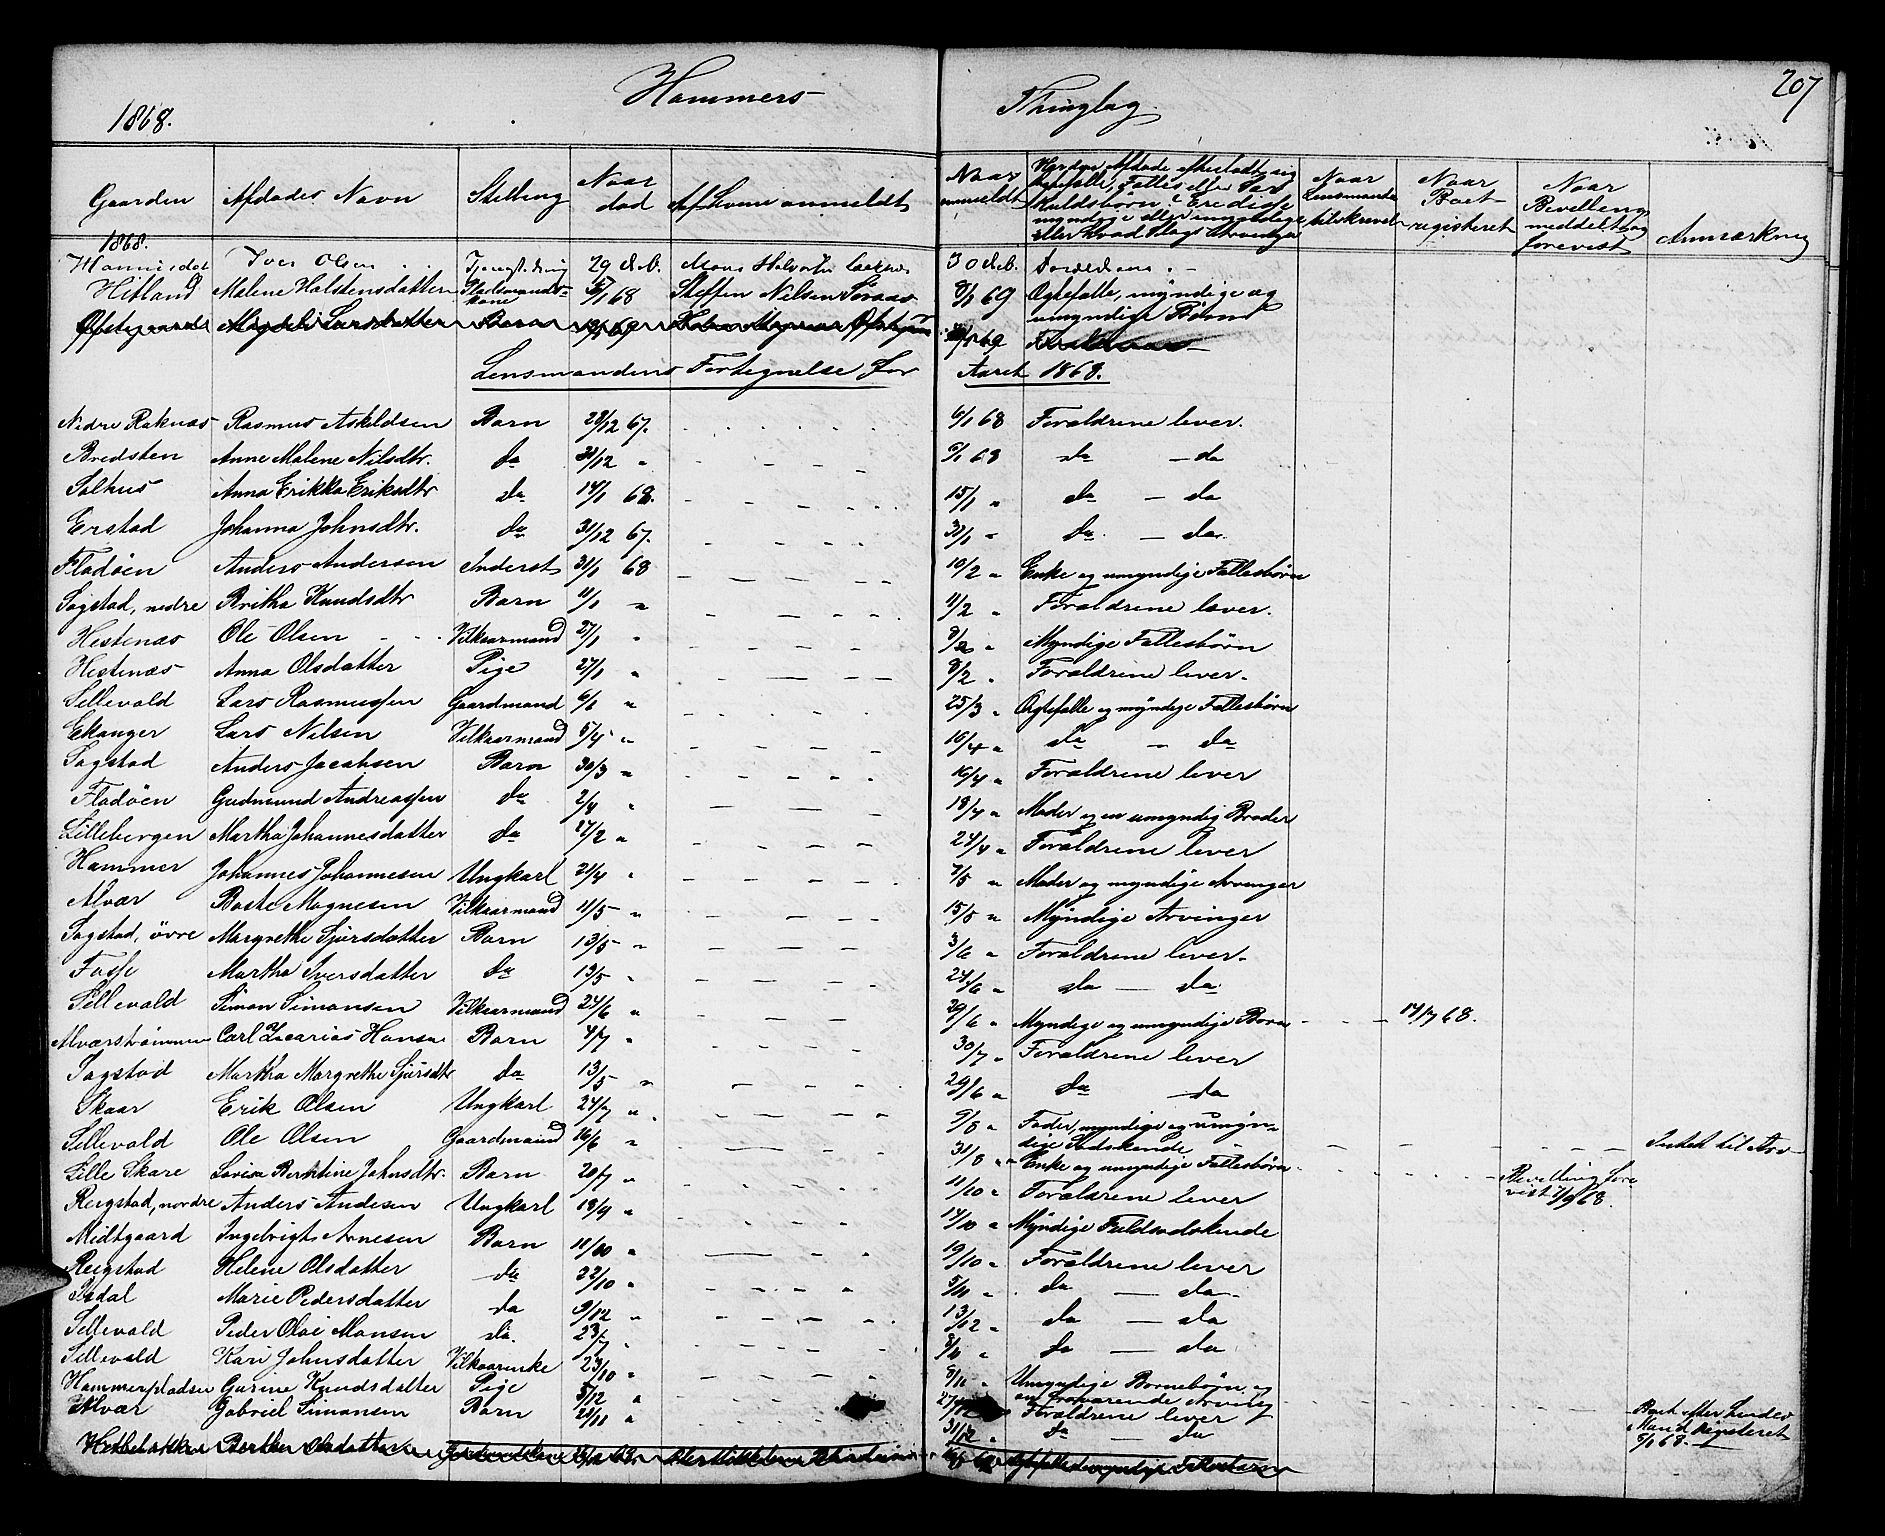 207
1868. Hammers Thinglag.
Gaarden Afdødes Navn Stilling Naar død Af hvem anmeldt Naar anmeldt Naar Lensmanden tilskrevet Naar Boet registeret Naar Bevilling meddelt og forevist Anmærkning
1868.
Iver Olsen 29 Deb. Mons 30 Deb. Forældrene
Hitland Malene Halstensdatter 68 Steffen Nilsen 8/1 69 Ægtefælle, myndige og umyndige Børn
Lensmandens Fortegnelse for Aaret 1868.
Nedre Raknæs Rasmus Askildsen Barn 29/12 67. 6/1 68 Forældrene lever.
Bredsten Anne Malene Nilsdtr. do 31/12 " 6/1 68 do - do
Salhus Anna Erikka Eriksdtr do 14/1 68. 15/1 " do - do
Erstad Johanna Johnsdtr. do 31/12 67. 31/1 " do - do
Fladøen Anders Andersen Inderst 31/1 68 10/2 " Enke og umyndige Fællesbørn
Sagstad, nedre Britha Knudsdtr Barn 11/1 " 11/2 " Forældrene lever.
Hestenæs Ole Olsen Vilkaarmand 27/1 " 8/2 " Myndige Fællesbørn
Hestenæs Anna Olsdatter Pige 27/1 " 8/2 " Forældrene lever.
Sellevold Lars Rasmussen Gaardmand 6/1 " 25/3 " Ægtefælle og myndige Fællesbørn
Ekanger Lars Nilsen Vilkaarmand 5/4 " 16/4 " do - do
Sagstad Anders Jacobsen Barn 30/3 " 16/4 " Forældrene lever
Fladøen Gudmund Andreassen do 2/4 " 18/4 " Moder og en umyndig Broder
Lillebergen Martha Johannesdatter do 27/2 " 24/4 " Forældrene lever
Hammer Johannes Johannesen Ungkarl 21/4 " 7/5 " Moder og myndige Arvinger
Alvær Baste Magnesen Vilkaarmand 11/5 " 15/5 " Myndige Arvinger
Sagstad, øvre Margrethe Sjursdatter Barn 13/5 " 3/6 " Forældrene lever.
Fosse Martha Iversdatter do 13/5 " 24/6 " do - do
Sellevold Simon Simonsen Vilkaarmand 24/6 " 29/6 " Myndige og umyndige Børn 17/7 68.
Alværstrømmen Carl Zacarias Hansen Barn 4/7 " 30/7 " Forældrene lever
Sagstad Martha Margrethe Sjursdtr do 13/5 " 29/6 " do - do
Skaar Erik Olsen Ungkarl 24/7 " 9/8 " Fader, myndige og umyndige Sødskende
Sellevold Ole Olsen Gaardmand 16/6 " 31/8 " Enke og umyndige Fællesbørn Bevilling forevist 7/9 68. Intet til Arv
Lille Skare Lovise Berntine Johnsdtr. Barn 20/7 " 11/10 " Forældrene lever
Reigstad, nordre Anders Andersen Ungkarl 18/9 " 14/10 " Myndige Fuldsødskende
Midtgaard Ingebrigt Arnesen Barn 10/10 " 19/10 " Forældrene lever
Reigstad Helene Olsdatter do 22/10 " 5/11 " do - do
Isdal Marie Pedersdatter do 9/12 " 13/12 " do - do
Sellevold Peder Olai Monsen do 23/7 " 8/11 " do - do
Sellevold Kari Johnsdatter Vilkaarenke 23/10 " 8/11 " Umyndige Børnebørn og en fraværende Arving
Hammerpladsen Gurine Knudsdatter Pige 5/12 " 27/12 Forældrene lever
Alvær Gabriel Simonsen Barn 28/11 " 31/12 " do - do
Boet efter hendes Mand registeret 68.